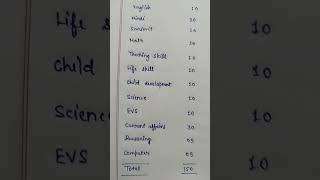 English 10
Hindi 30
Sanskrit 10
Math 10
Teaching skill 10
Life skill 10
Child development 10
Science 10
EVS 10
Current affairs 30
Reasoning 05
Computer 05
Total 150
Life sk
Child
Science
EVS
10
10
10
10